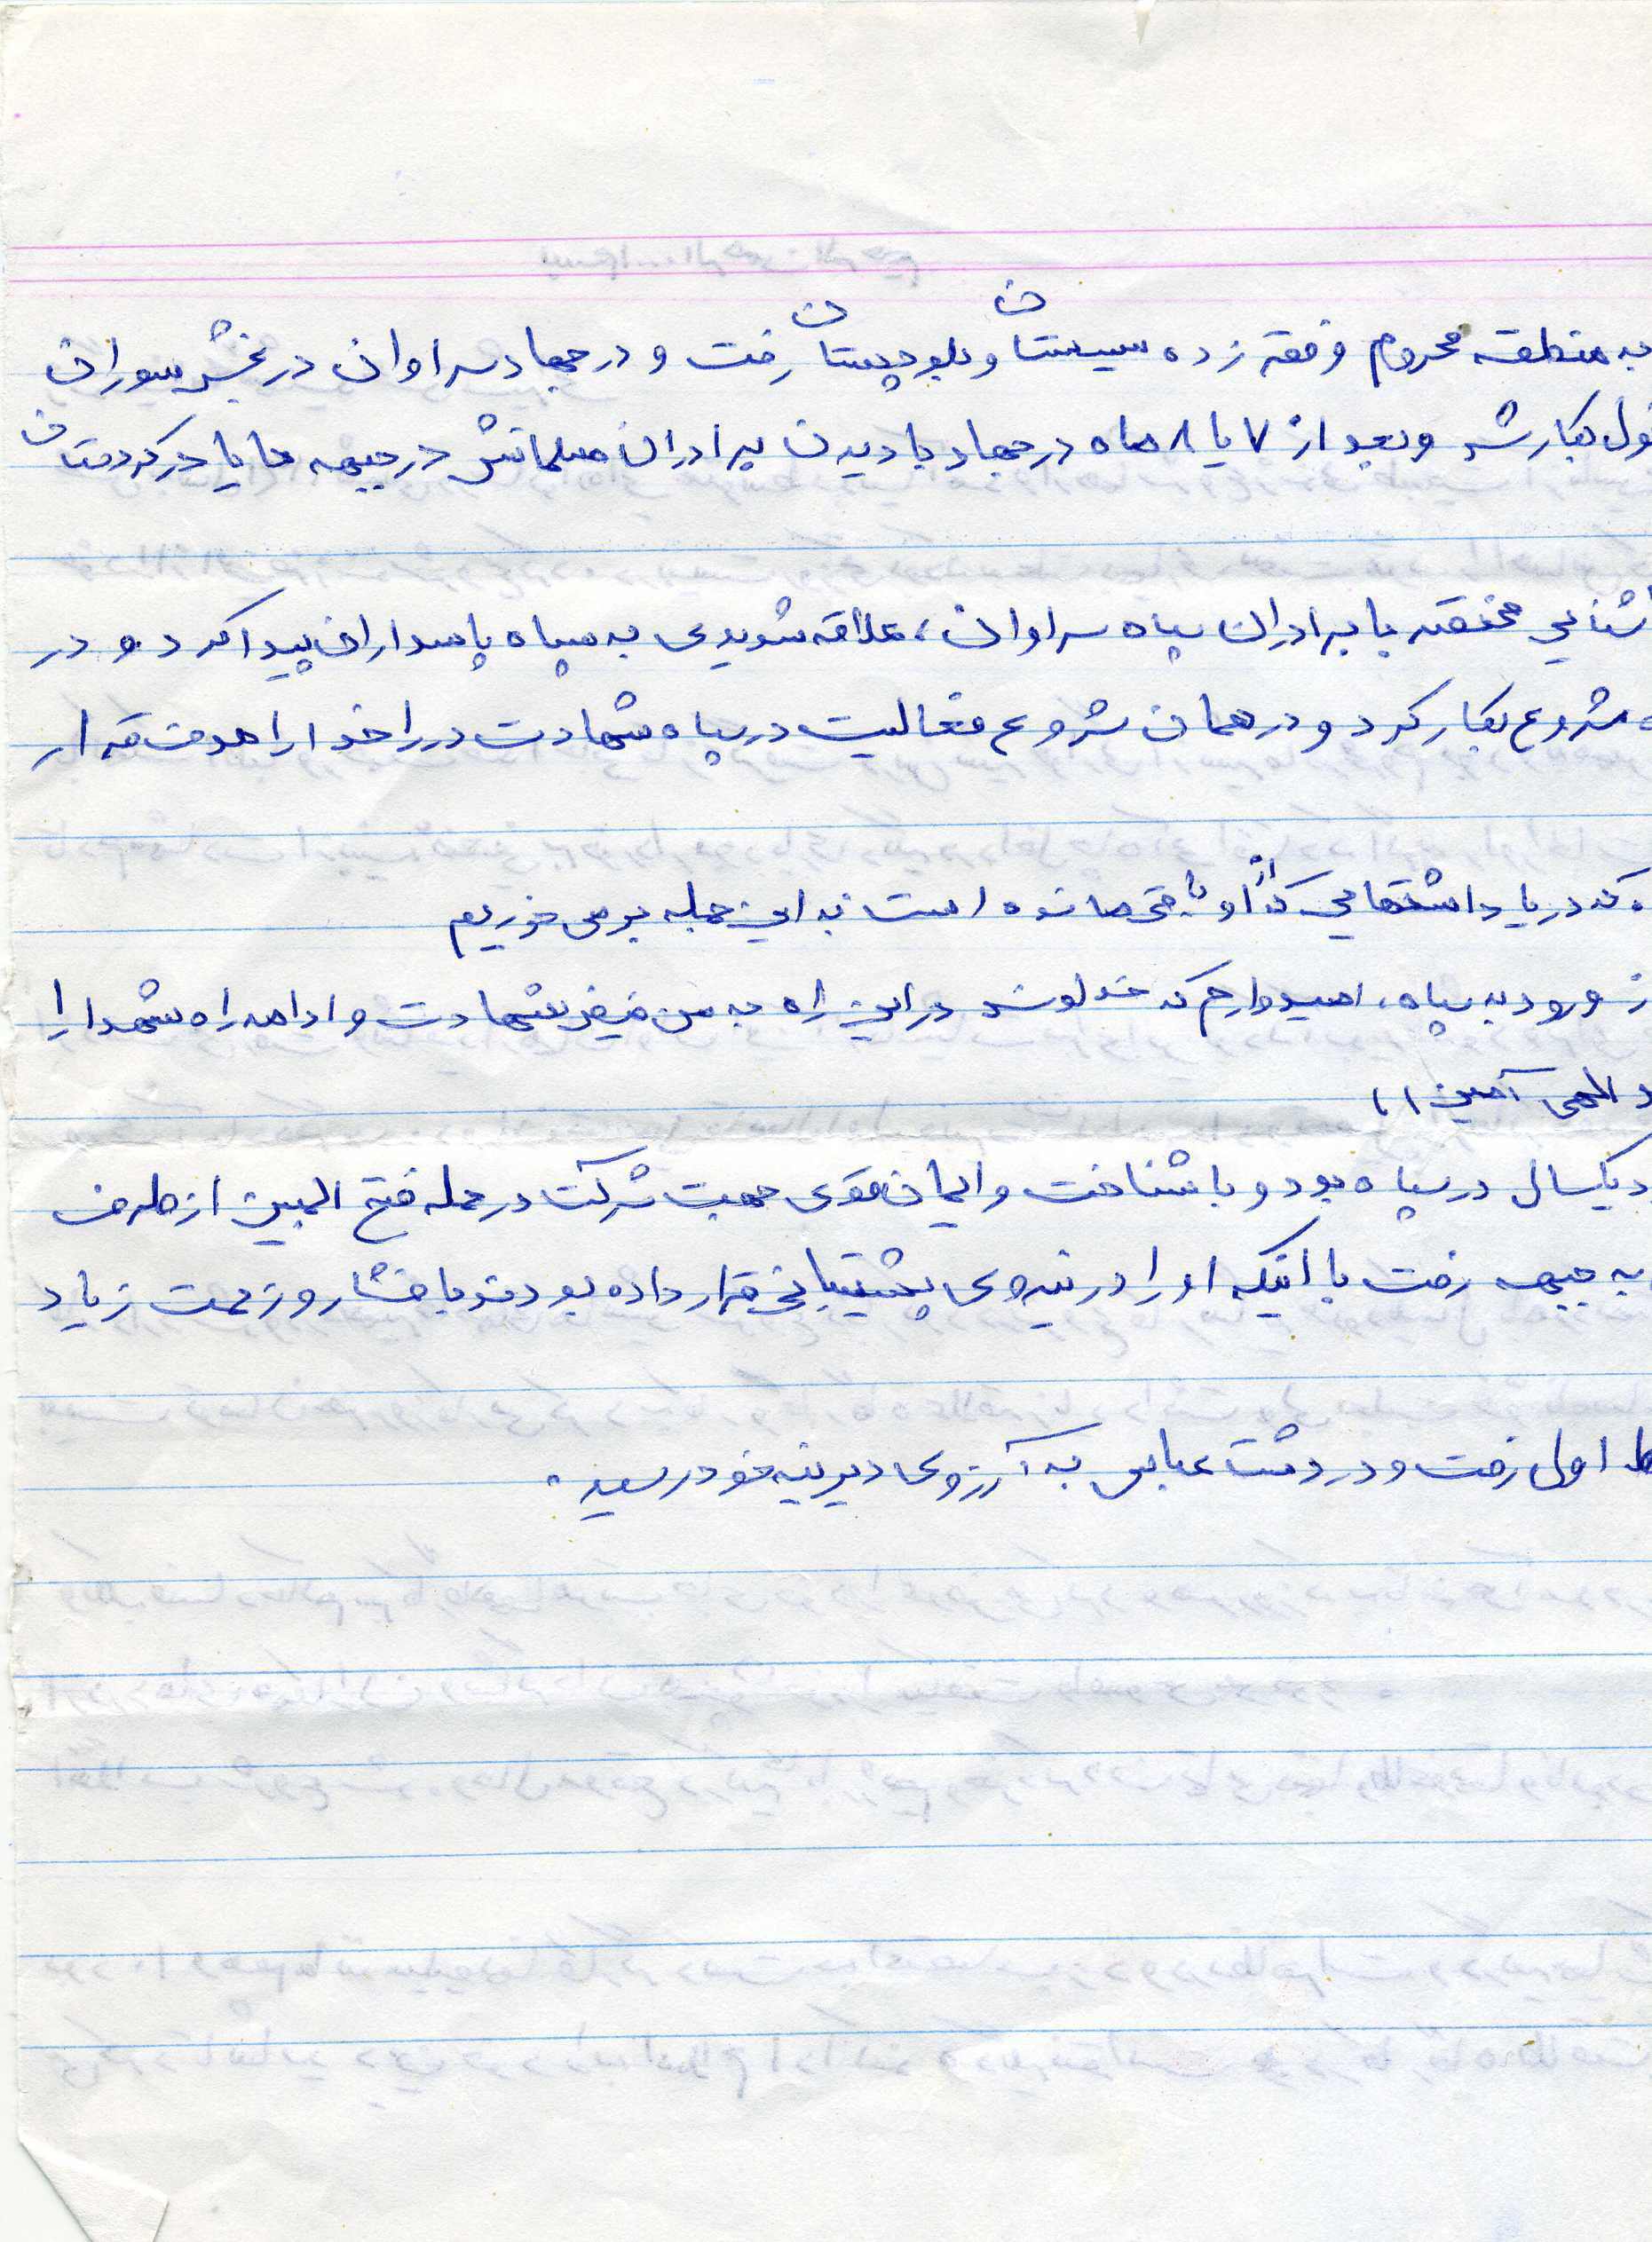 به منطقه محروم و فقر زده سیستان و بلوچستان رفت و در جهاد سراوان در بخش سوران
ول بکار شد و بعد از ۷ یا ۸ ماه در جهاد با دیدن برادران مسلمانش در جبهه ها یا در کردستان
شنایی مختصر با برادران سپاه سراوان، علاقه شدیدی به سپاه پاسداران پیدا کرد. و در
ه شروع بکار کرد و در همان شروع فعالیت در سپاه شهادت در راه خدا را هدف قرار
ه که در یاداشتهایی که از او باقی مانده است به این جمله بر می خوریم
ز ورود به سپاه، امیدوارم که خداوند در این راه به من فیض شهادت و ادامه راه شهدا را
د الهی آمین))
د یکسال در سپاه بود و با شناخت و ایمان قوی جهت شرکت در حمله فتح المبین از طرف
به جبهه رفت با اینکه او را در نیروی پشتیبانی قرار داده بودند با فشار و زحمت زیاد
ط اول رفت و در دشت عباس به آرزوی دیرینه خود رسید.